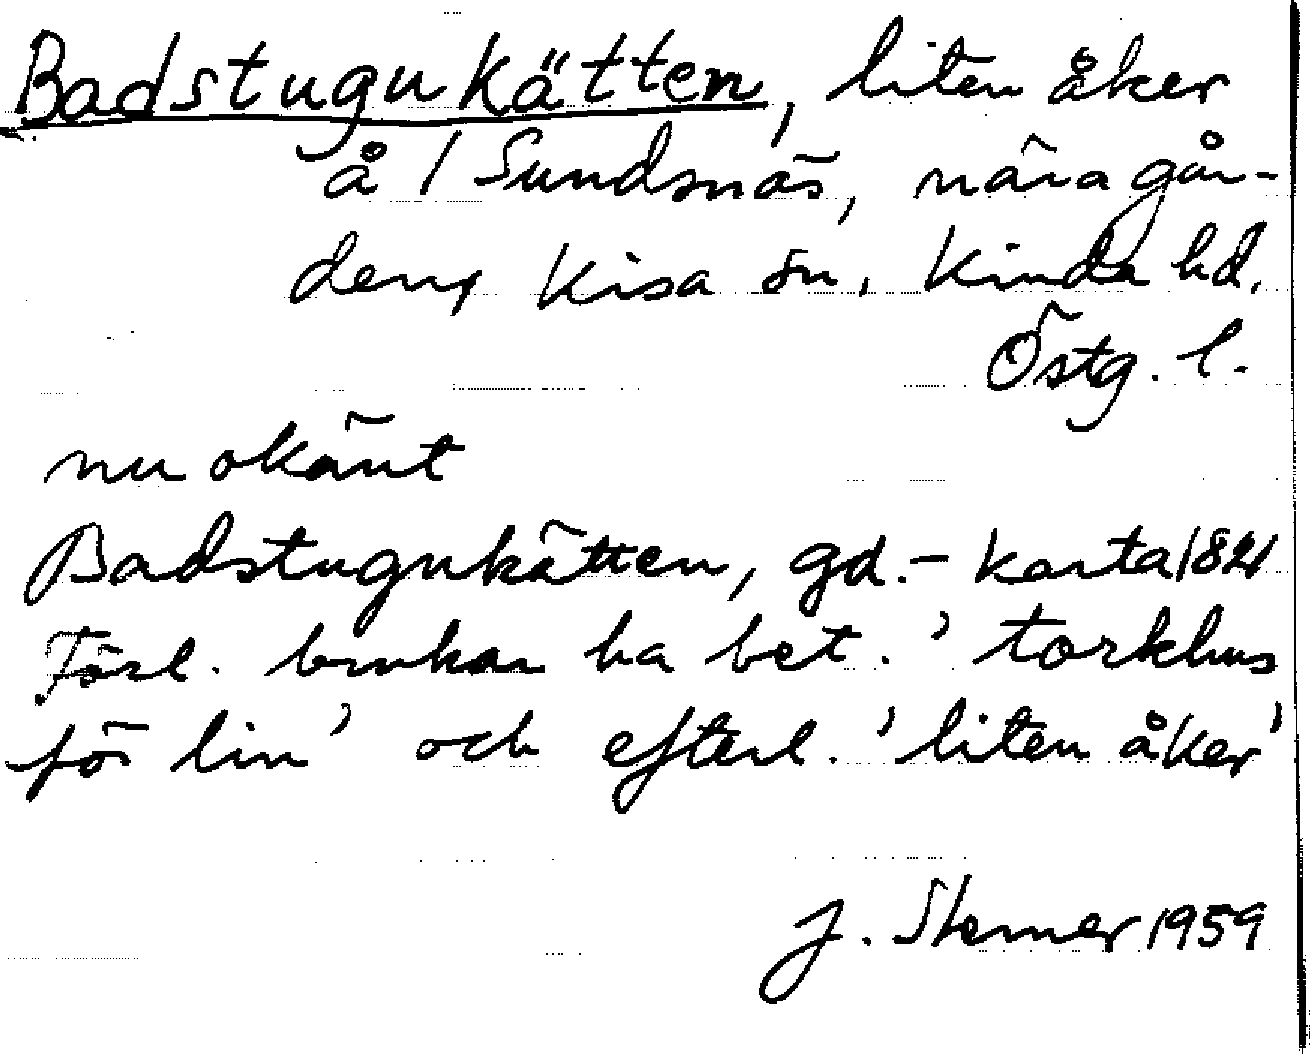 Badstugukätten, liten åker
å 1 Sundsnäs, nära går-
den, Kisa sn, Kinda hd,
Östg. l.
nu okänt
Badstugukätten, gd.- karta 1821
Förl. brukar ha bet. 'torkhus
för lin' och efterl. 'liten åker'
J. Sterner 1959